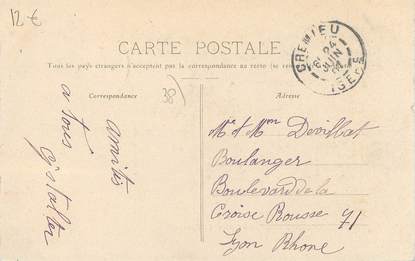 12 €
CARTE POSTALE
Tous les pays étrangers n'acceptent pas la correspondance au recto (se
CREMIEU
24
JUIN
ISERE
Correspondance
38
Adresse
amitiés
a tous
Mr et Mme Devillat
Boulanger
Boulevard de la
Croise Rousse 71
Lyon Rhone